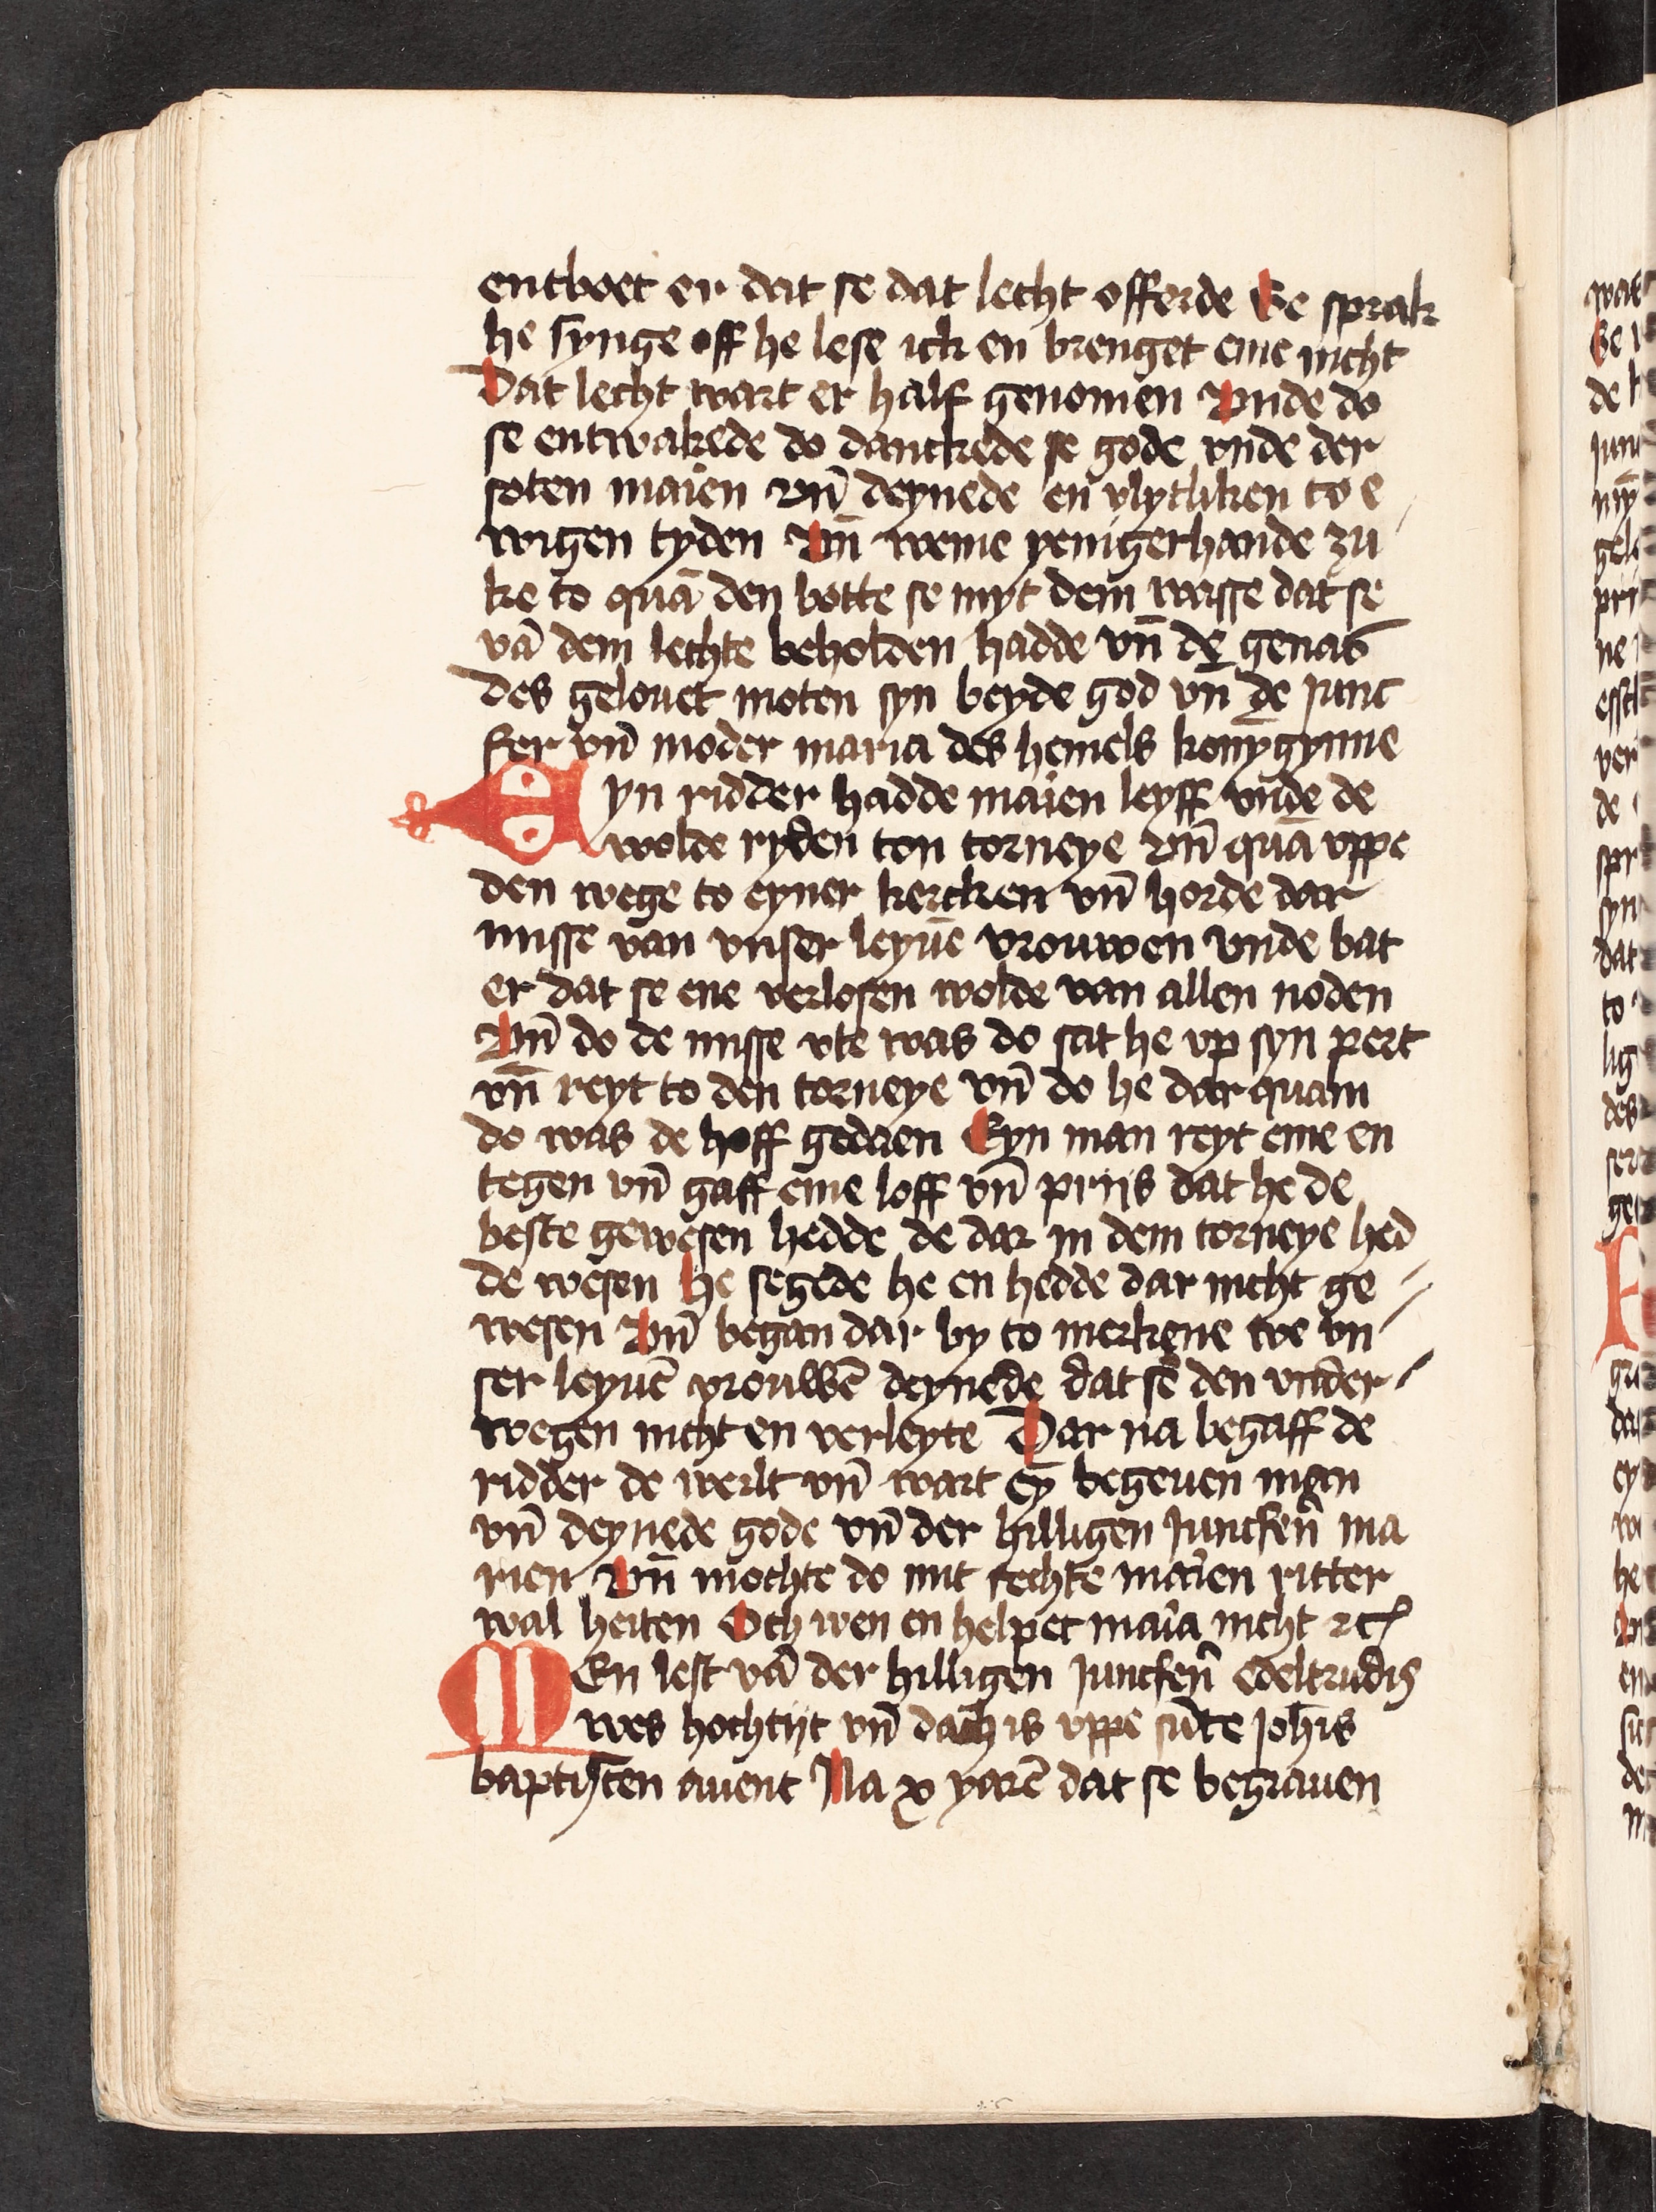 entboet er dat se dat lecht offerde Se sprak
he synge off he lese ick en brenget eme nicht
Dat lecht wart er half genomen Vnde do
se entwakede do danckede se gode vnde der
soten maien vn̄ deynede en vlytliken to e
wigen tyden Vn̄ weme yenigerhande zu
ke to quā den botte se myt dem wasse dat se
vā dem lechte beholden hadde vn̄ de genas
des gelouet moten syn beyde god vn̄ de junc
fer vn̄ moder maria des hemels konȳgynne
Eyn ridder hadde maien leyff vnde de
wolde ryden ton torneye vn̄ quā vppe
den wege to eyner kercken vn̄ horde dar
misse van vnser leyuē vrouwen vnde bat
er dat se ene verlosen wolde van allen noden
Vn̄ do de misse vte was do sat he vp syn pert
vn̄ reyt to den torneye vn̄ do he dar quam
do was de hoff gedaen Eyn man reyt eme en
tegen vn̄ gaff eme loff vn̄ priis dat he de
beste gewesen hedde de dar in dem torneye hed
de wesen he segede he en hedde dar nicht ge
wesen Vn̄ began dar by to merkene we vn
ser leyuē vrouwē deynede dat se den vnder
wegen nicht en verleyte Dar na begaff de
ridder de werlt vn̄ wart eȳ begeuen man
vn̄ deynede gode vn̄ der hilligen juncfen̄ ma
rien Vn̄ mochte do mit rechte maien ritter
wal heiten Och wen en helpet maia nicht ⁊c
MEn lest vā der hilligen juncfen̄ Edeltrudis
wes hochtijt vn̄ dach is vppe sūte joh̄is
baptisten auent Na x yarē dat se begrauen